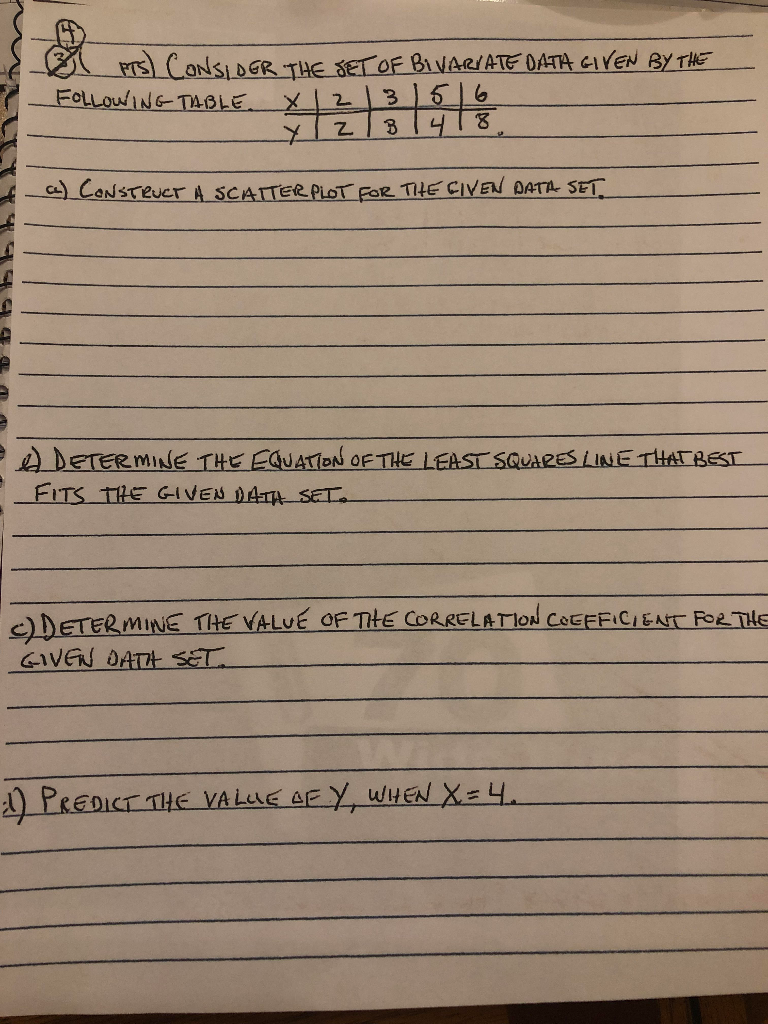 4
3 ( PTS) CONSIDER THE SET OF BIVARIATE DATA GIVEN BY THE
FOLLOWING TABLE. X | 2 | 3 | 5 | 6
Y | 2 | 3 | 4 | 8.
a) CONSTRUCT A SCATTERPLOT FOR THE GIVEN DATA SET.
b) DETERMINE THE EQUATION OF THE LEAST SQUARES LINE THAT BEST
FITS THE GIVEN DATA SET.
c) DETERMINE THE VALUE OF THE CORRELATION COEFFICIENT FOR THE
GIVEN DATA SET.
d) PREDICT THE VALUE OF Y, WHEN X = 4.